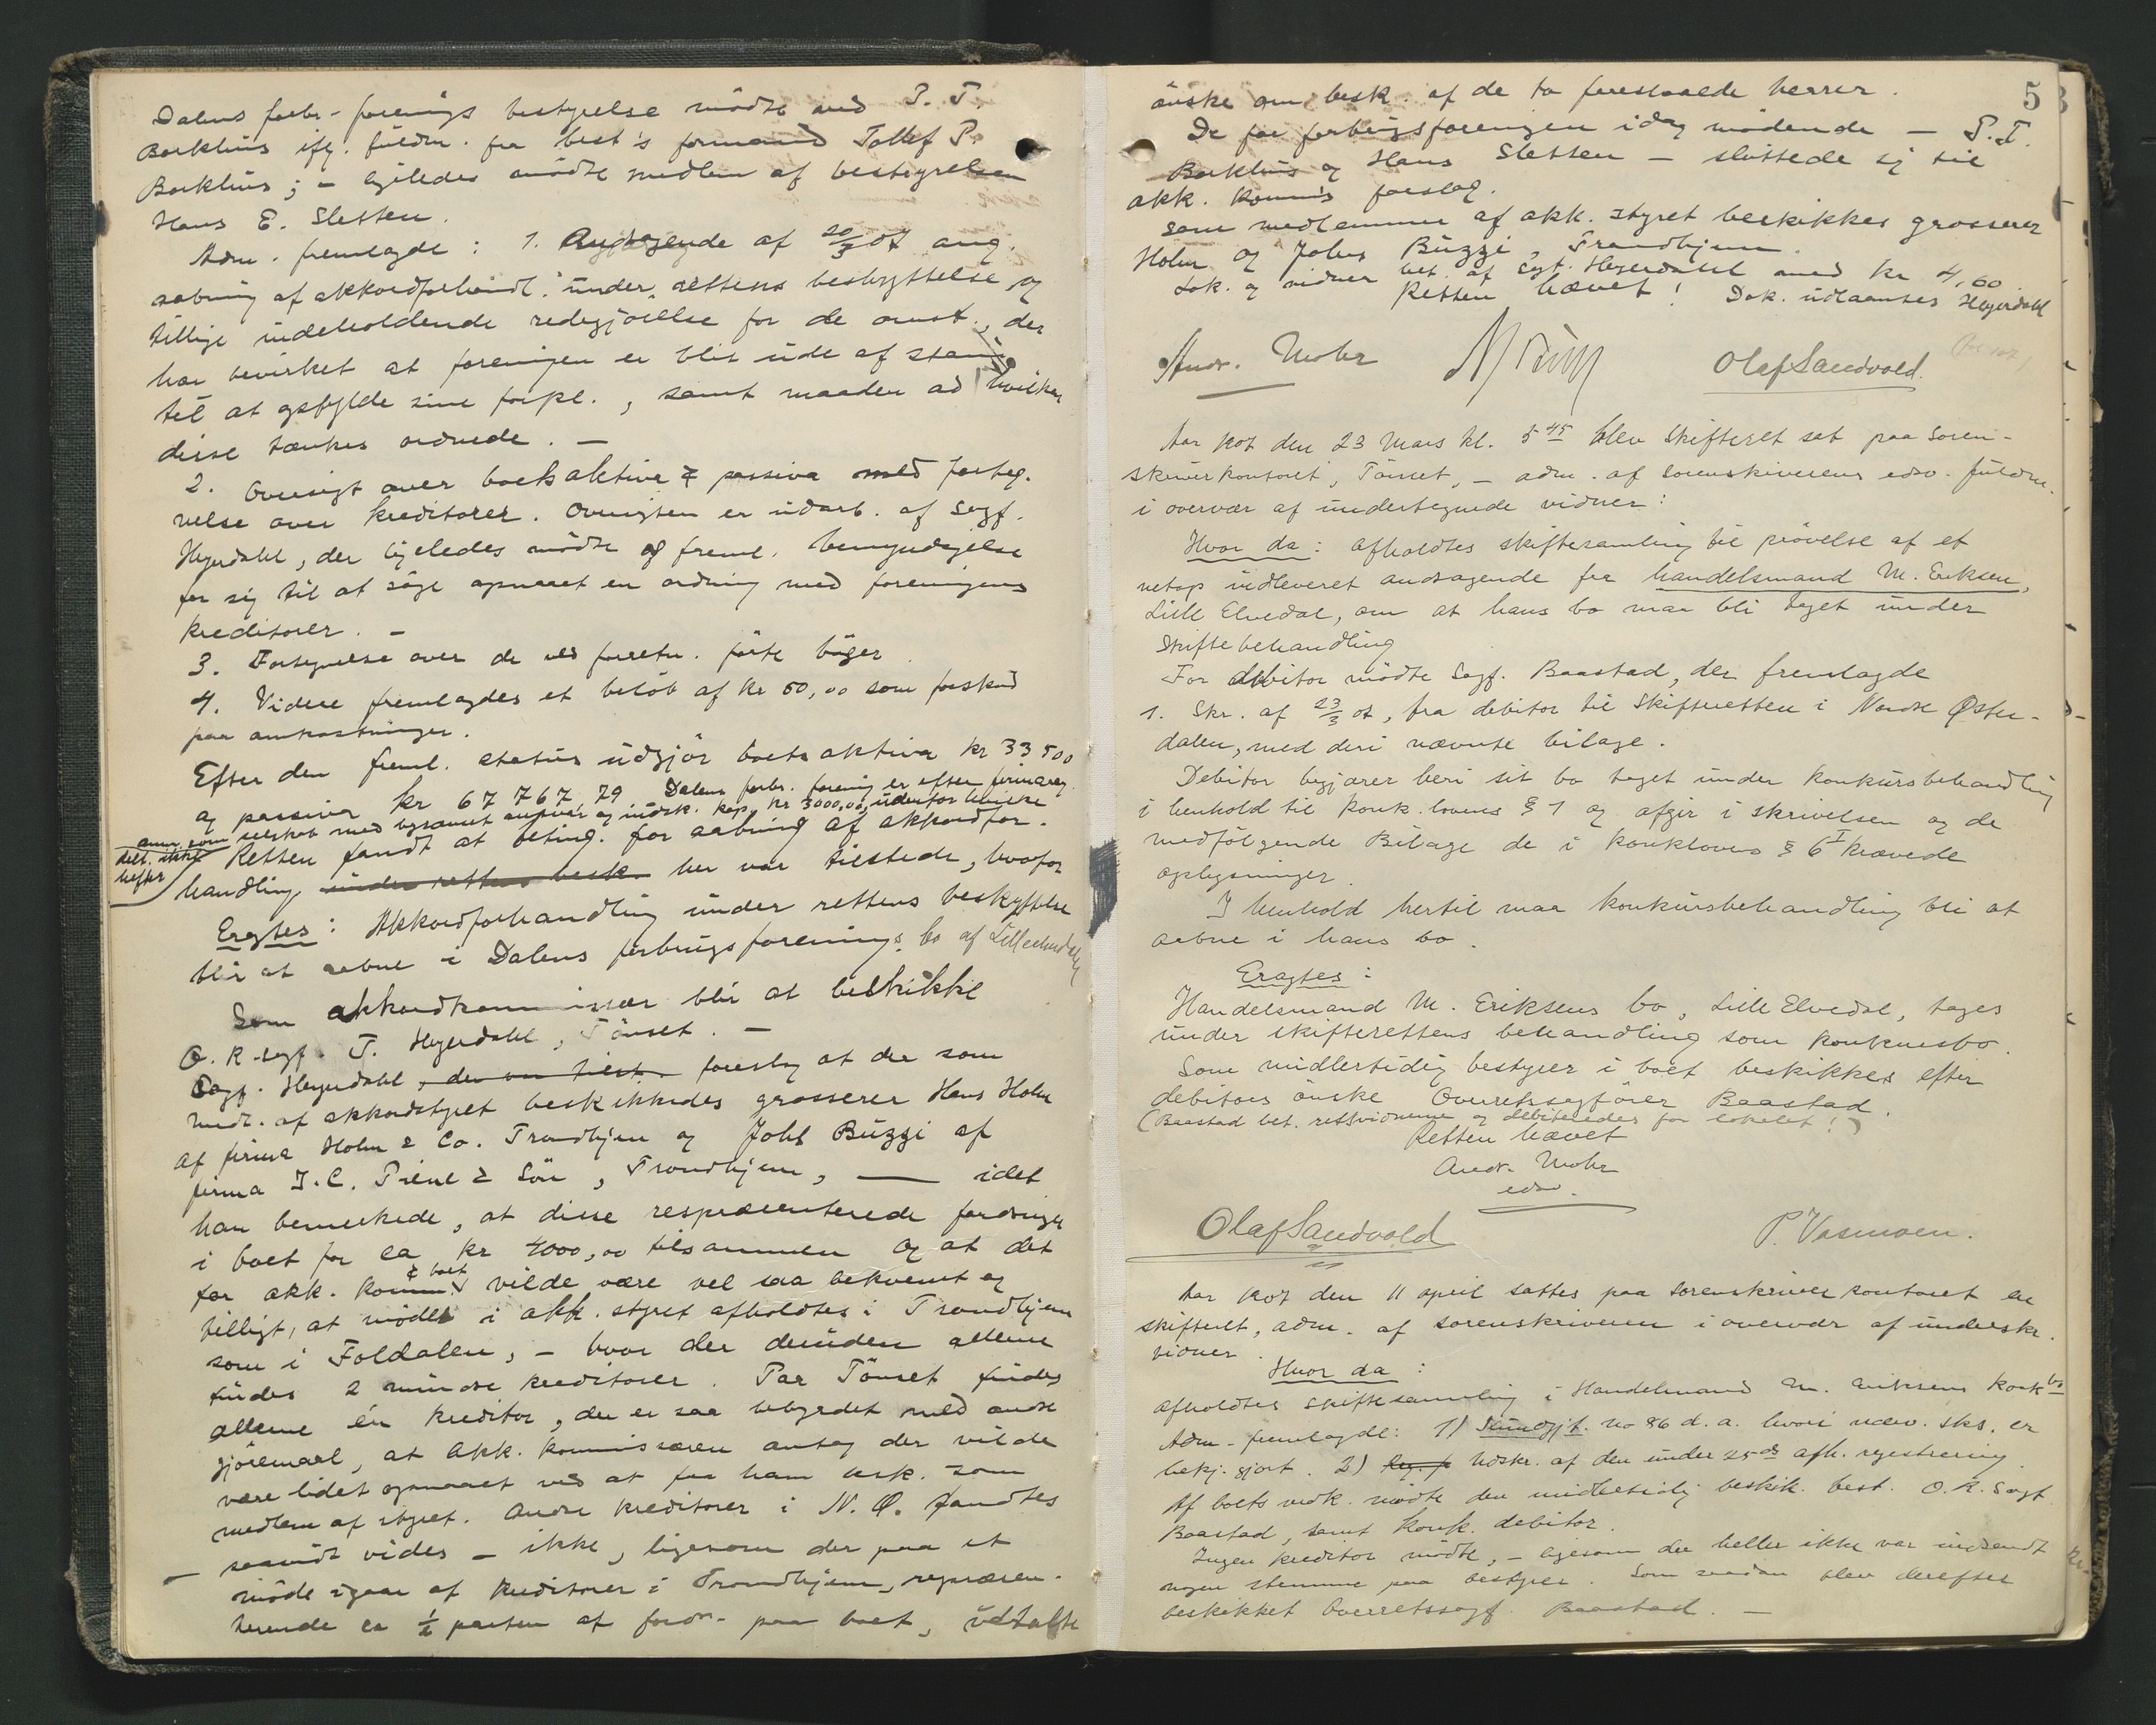 Dalens forbr-forenings bestyrelse mødte ved P. T.
Borkhus iflg. fuldm. fra best's formand Tollef P.
Borkhus; - ligeledes mødte medlem af bestyrelsen
Hans E. Sletten.
Adm. fremlagde: 1. Andragende af 20/3 07 ang.
aabning af akkordforhandl. under rettens beskyttelse og
tillige indeholdende redegjørelse for de omst., der
har bevirket at foreningen er blit ude af stand
til at opfylde sine forpl., samt maaden ad hvilken
disse tænkes ordnede. -
2. Oversigt over boets aktiva & passiva med forteg-
nelse over kreditorer. Oversigten er udarb. af Sagf.
Heyerdahl, der ligeledes mødte og freml. bemyndigelse
for sig til at søge opnaaet en ordning med foreningens
kreditorer. -
3. Fortegnelse over de ved forretn. førte bøger.
4. Videre fremlagdes et beløb af kr 50,00 som forskud
paa omkostninger.
Efter den freml. status udgjør boets aktiva kr 33 500
og passiva kr 67 767,79 Dalens forbr. forening er efter firmareg.
anm. som selskab med begrænset ansvar og indsk. kap. kr 3000,00, udenfor hvilke
delt. ikke
hefter
Retten fandt at beting. for aabning af akkordfor-
handling under rettens besk. her var tilstede, hvorfor
Eragtes: Akkordforhandling under rettens beskyttelse
blir at aabne i Dalens forbrugsforenings bo af Lilleelvedalen
Som akkordkommissær blir at beskikke
O.R.sagf. T. Heyerdahl, Tönset. -
Sagf. Heyerdahl, der var tilst. foreslog at der som
medl. af akkordstyret beskikkedes grosserer Hans Holm
af firma Holm & Co. Trondhjem og Johs Buzzi af
firma I. C. Piene & Søn, Trondhjem, — idet
han bemerkede, at disse repræsenterede fordringer
i boet for ca kr 4000,00 tilsammen og at det
for akk. komm. & boet vilde være vel saa bekvemt og
billigt, at møder i akk. styret afholdtes i Trondhjem
som i Foldalen, - hvor der desuden allene
findes 2 mindre kreditorer. Paa Tönset findes
allene én kreditor, der er saa bebyrdet med andre
gjøremaal, at akk. kommissæren antog der vilde
være lidet opnaaet ved at faa ham besk. som
medlem af styret. Andre kreditorer i N. Ø. fandtes
- saavidt vides - ikke, ligesom der paa et
møde igaar af kreditorer i Trondhjem, repræsen-
terende ca ½ parten af fordr. paa boet, udtaltes
5
ønske om besk. af de to forestaaende herrer.
De for forbrugsforeningen idag mødende - P. T.
Borkhus og Hans Sletten - sluttede sig til
akk. komm's forslag.
Som medlemmer af akk. styret beskikkes grosserer
Holm og Johs Buzzi, Trondhjem.
Lok. og vidner bet. af Sagf. Heyerdahl med kr 4,60.
Retten hævet! Dok. udlaantes Heyerdahl
Andr. Mohr
Olaf Sandvold.
Aar 1907 den 23 Mars kl. 5 45 blev Skifteret sat paa Soren-
skriverkontoret, Tönset, - adm. af sorenskriverens edsv. fuldm.
i overvær af undertegnede vidner:
Hvor da: afholdtes skiftesamling til prøvelse af et
netop indleveret andragende fra handelsmand M. Eriksen,
Lille Elvedal, om at hans bo maa bli taget under
Skiftebehandling
For debitor mødte Sagf. Baastad, der fremlagde
1. Skr. af 23/3 07, fra debitor til Skifteretten i Nordre Øster-
dalen, med deri nævnte bilage.
Debitor begjærer heri sit bo taget under konkursbehandling
i henhold til konk. lovens § 1 og afgir i skrivelsen og de
medfølgende Bilage de i konklovens § 6 I krævede
oplysninger.
I henhold hertil maa konkursbehandling bli at
aabne i hans bo.
Eragtes:
Handelsmand M. Eriksens bo, Lille Elvedal, tages
under skifterettens behandling som konkursbo.
Som midlertidig bestyrer i boet beskikkes efter
debitors ønske Overretssagfører Baastad.
(Baastad bet. retsvidnerne og debiteredes for lokalet!)
Retten hævet
Andr. Mohr
edsv.
Olaf Sandvold
P. Vasmoen.
Aar 1907 den 11 april sattes paa Sorenskriverkontoret en
skifteret, adm. af sorenskriveren i overvær af underskr.
vidner.
Hvor da:
afholdtes skiftesamling i Handelsmand M. Eriksens konkbo
Adm. fremlagde: 1) Kundgjt. no 86 d. a. hvori nærv. sks. er
bekj. gjort. 2) Reg. p Udskr. af den under 25 ds afh. registrering.
Af boets vedk. mødte den midlertidig beskik. best. O.R. Sagf
Baastad, samt konk. debitor.
Ingen kreditor mødte, - ligesom der heller ikke var indsendt
nogen stemme paa bestyrer. Som saadan blev derefter
beskikket Overretssagf. Baastad. -